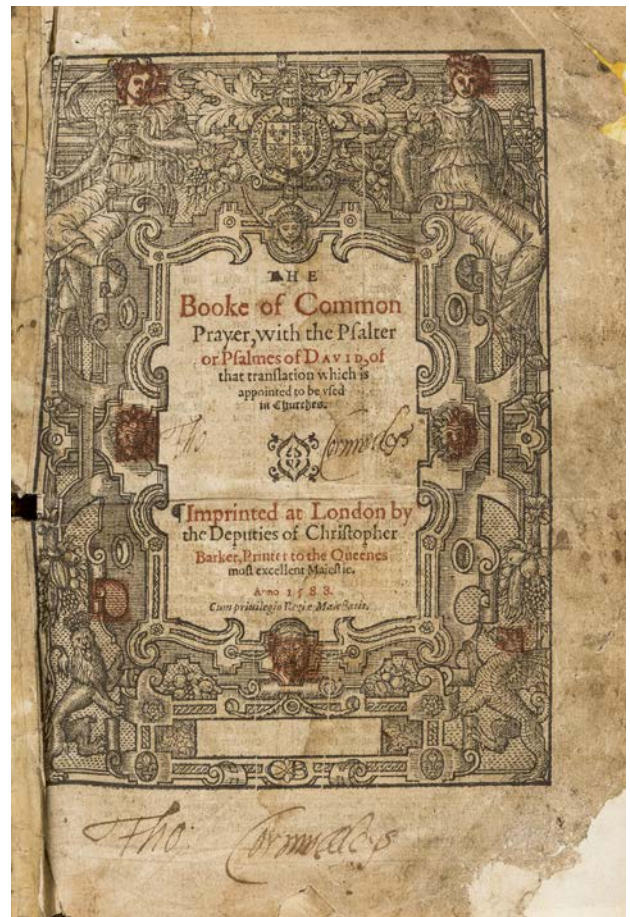 THE
Booke of Common
Prayer, with the Pſalter
or Pſalmes of DAVID, of
that tranſlation which is
appointed to be vſed
in Churches.
Tho Cornwaleys
¶Imprinted at London by
the Deputies of Chriſtopher
Barker, Printer to the Queenes
moſt excellent Maieſtie.
Anno 1588.
Cum priuilegio Regiæ Maieſtatis.
CB
Tho: Cornwaleys